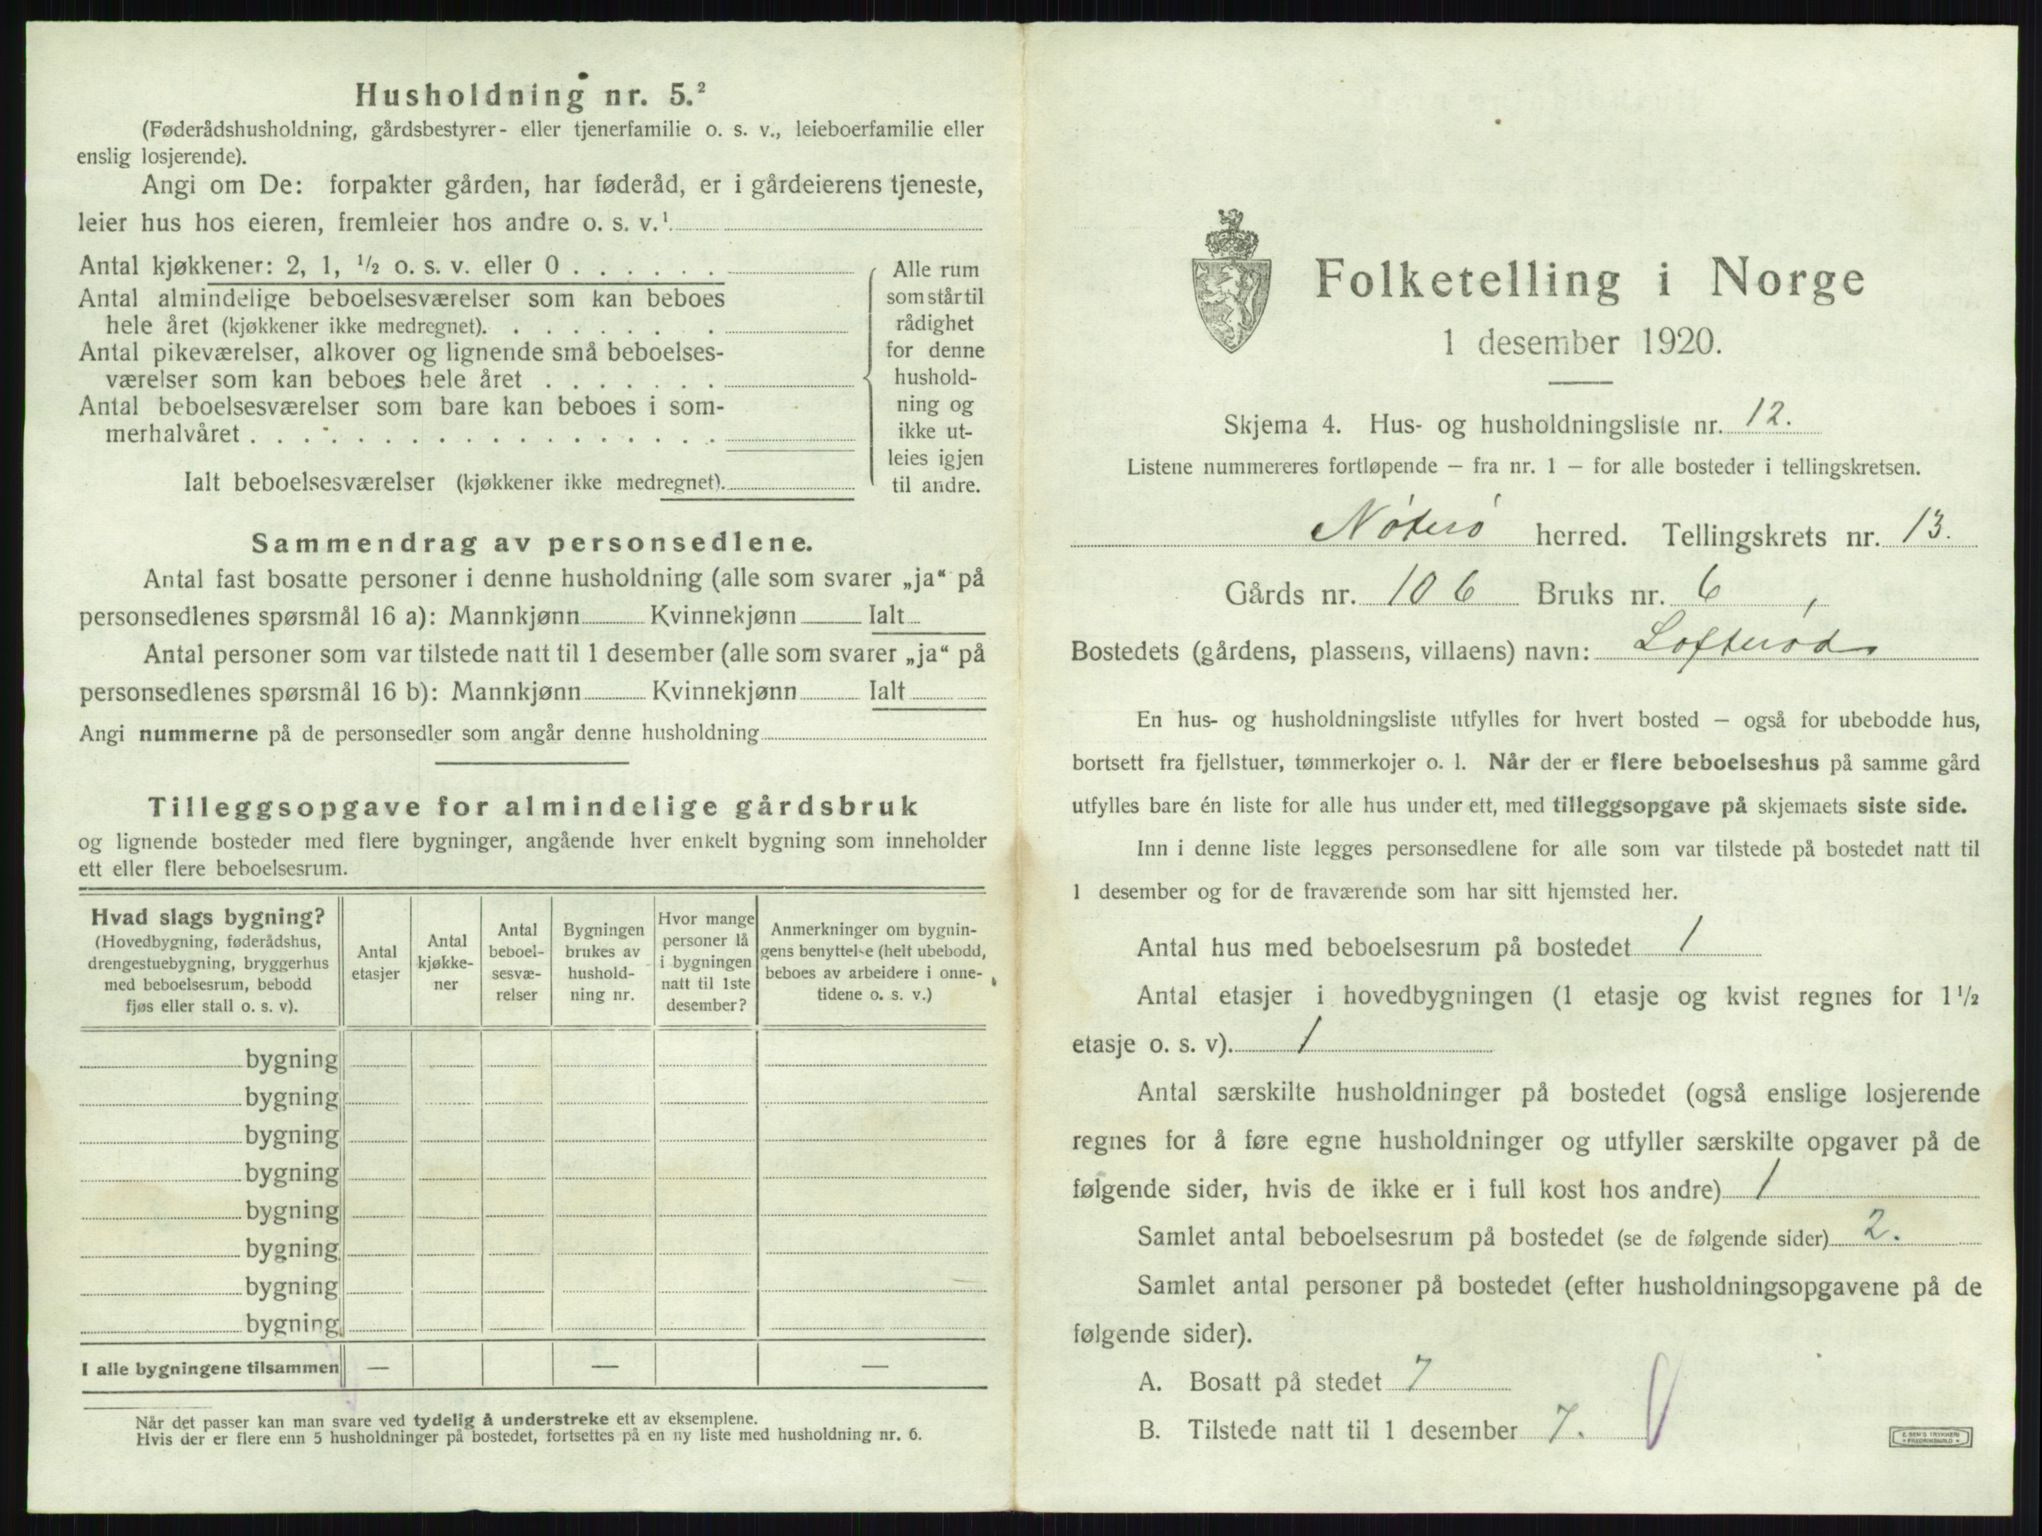 Husholdning nr. 5.²
(Føderådshusholdning, gårdsbestyrer- eller tjenerfamilie o. s. v., leieboerfamilie eller
enslig losjerende).
Angi om De: forpakter gården, har føderåd, er i gårdeierens tjeneste,
leier hus hos eieren, fremleier hos andre o. s. v.¹
Antal kjøkkener: 2, 1, ½ o. s. v. eller 0 . . . . . .
Antal almindelige beboelsesværelser som kan beboes
hele året (kjøkkener ikke medregnet). . . . . . . . .
Antal pikeværelser, alkover og lignende små beboelses-
værelser som kan beboes hele året . . . . . . .
Antal beboelsesværelser som bare kan beboes i som-
merhalvåret . . . . . . . . . . . . . . . . . .
Ialt beboelsesværelser (kjøkkener ikke medregnet).
Alle rum
som står til
rådighet
for denne
hushold-
ning og
ikke ut-
leies igjen
til andre.
Sammendrag av personsedlene.
Antal fast bosatte personer i denne husholdning (alle som svarer „ja“ på
personsedlenes spørsmål 16 a): Mannkjønn Kvinnekjønn Ialt
Antal personer som var tilstede natt til 1 desember (alle som svarer „ja“ på
personsedlenes spørsmål 16 b): Mannkjønn Kvinnekjønn Ialt
Angi nummerne på de personsedler som angår denne husholdning
Tilleggsopgave for almindelige gårdsbruk
og lignende bosteder med flere bygninger, angående hver enkelt bygning som inneholder
ett eller flere beboelsesrum.
Hvad slags bygning?
(Hovedbygning, føderådshus,
drengestuebygning, bryggerhus
med beboelsesrum, bebodd
fjøs eller stall o. s. v).
Antal
etasjer
Antal
kjøkke-
ner
Antal
beboel-
sesvæ-
relser
Bygningen
brukes av
hushold-
ning nr.
Hvor mange
personer lå
i bygningen
natt til 1ste
desember?
Anmerkninger om bygnin-
gens benyttelse (helt ubebodd,
beboes av arbeidere i onne-
tidene o. s. v.)
bygning
bygning
bygning
bygning
bygning
bygning
bygning
bygning
I alle bygningene tilsammen — — —
Når det passer kan man svare ved tydelig å understreke ett av eksemplene.
Hvis der er flere enn 5 husholdninger på bostedet, fortsettes på en ny liste med husholdning nr. 6.
Folketelling i Norge
1 desember 1920.
Skjema 4. Hus- og husholdningsliste nr. 12.
Listene nummereres fortløpende – fra nr. 1 – for alle bosteder i tellingskretsen.
Nøterø herred. Tellingskrets nr. 13.
Gårds nr. 106 Bruks nr. 6
Bostedets (gårdens, plassens, villaens) navn: Lofterød
En hus- og husholdningsliste utfylles for hvert bosted – også for ubebodde hus,
bortsett fra fjellstuer, tømmerkojer o. l. Når der er flere beboelseshus på samme gård
utfylles bare én liste for alle hus under ett, med tilleggsopgave på skjemaets siste side.
Inn i denne liste legges personsedlene for alle som var tilstede på bostedet natt til
1 desember og for de fraværende som har sitt hjemsted her.
Antal hus med beboelsesrum på bostedet 1
Antal etasjer i hovedbygningen (1 etasje og kvist regnes for 1½
etasje o. s. v). 1
Antal særskilte husholdninger på bostedet (også enslige losjerende
regnes for å føre egne husholdninger og utfyller særskilte opgaver på de
følgende sider, hvis de ikke er i full kost hos andre) 1
Samlet antal beboelsesrum på bostedet (se de følgende sider) 2.
Samlet antal personer på bostedet (efter husholdningsopgavene på de
følgende sider).
A. Bosatt på stedet 7
B. Tilstede natt til 1 desember 7.